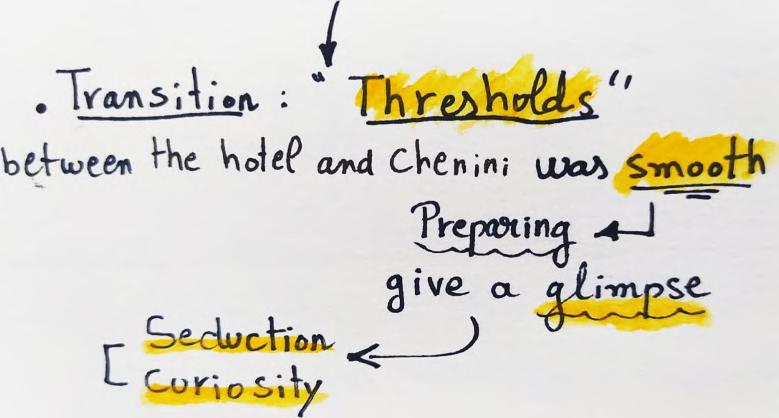 . Transition : "Thresholds"
between the hotel and Chenini was smooth
Preparing
give a glimpse
Seduction
Curiosity